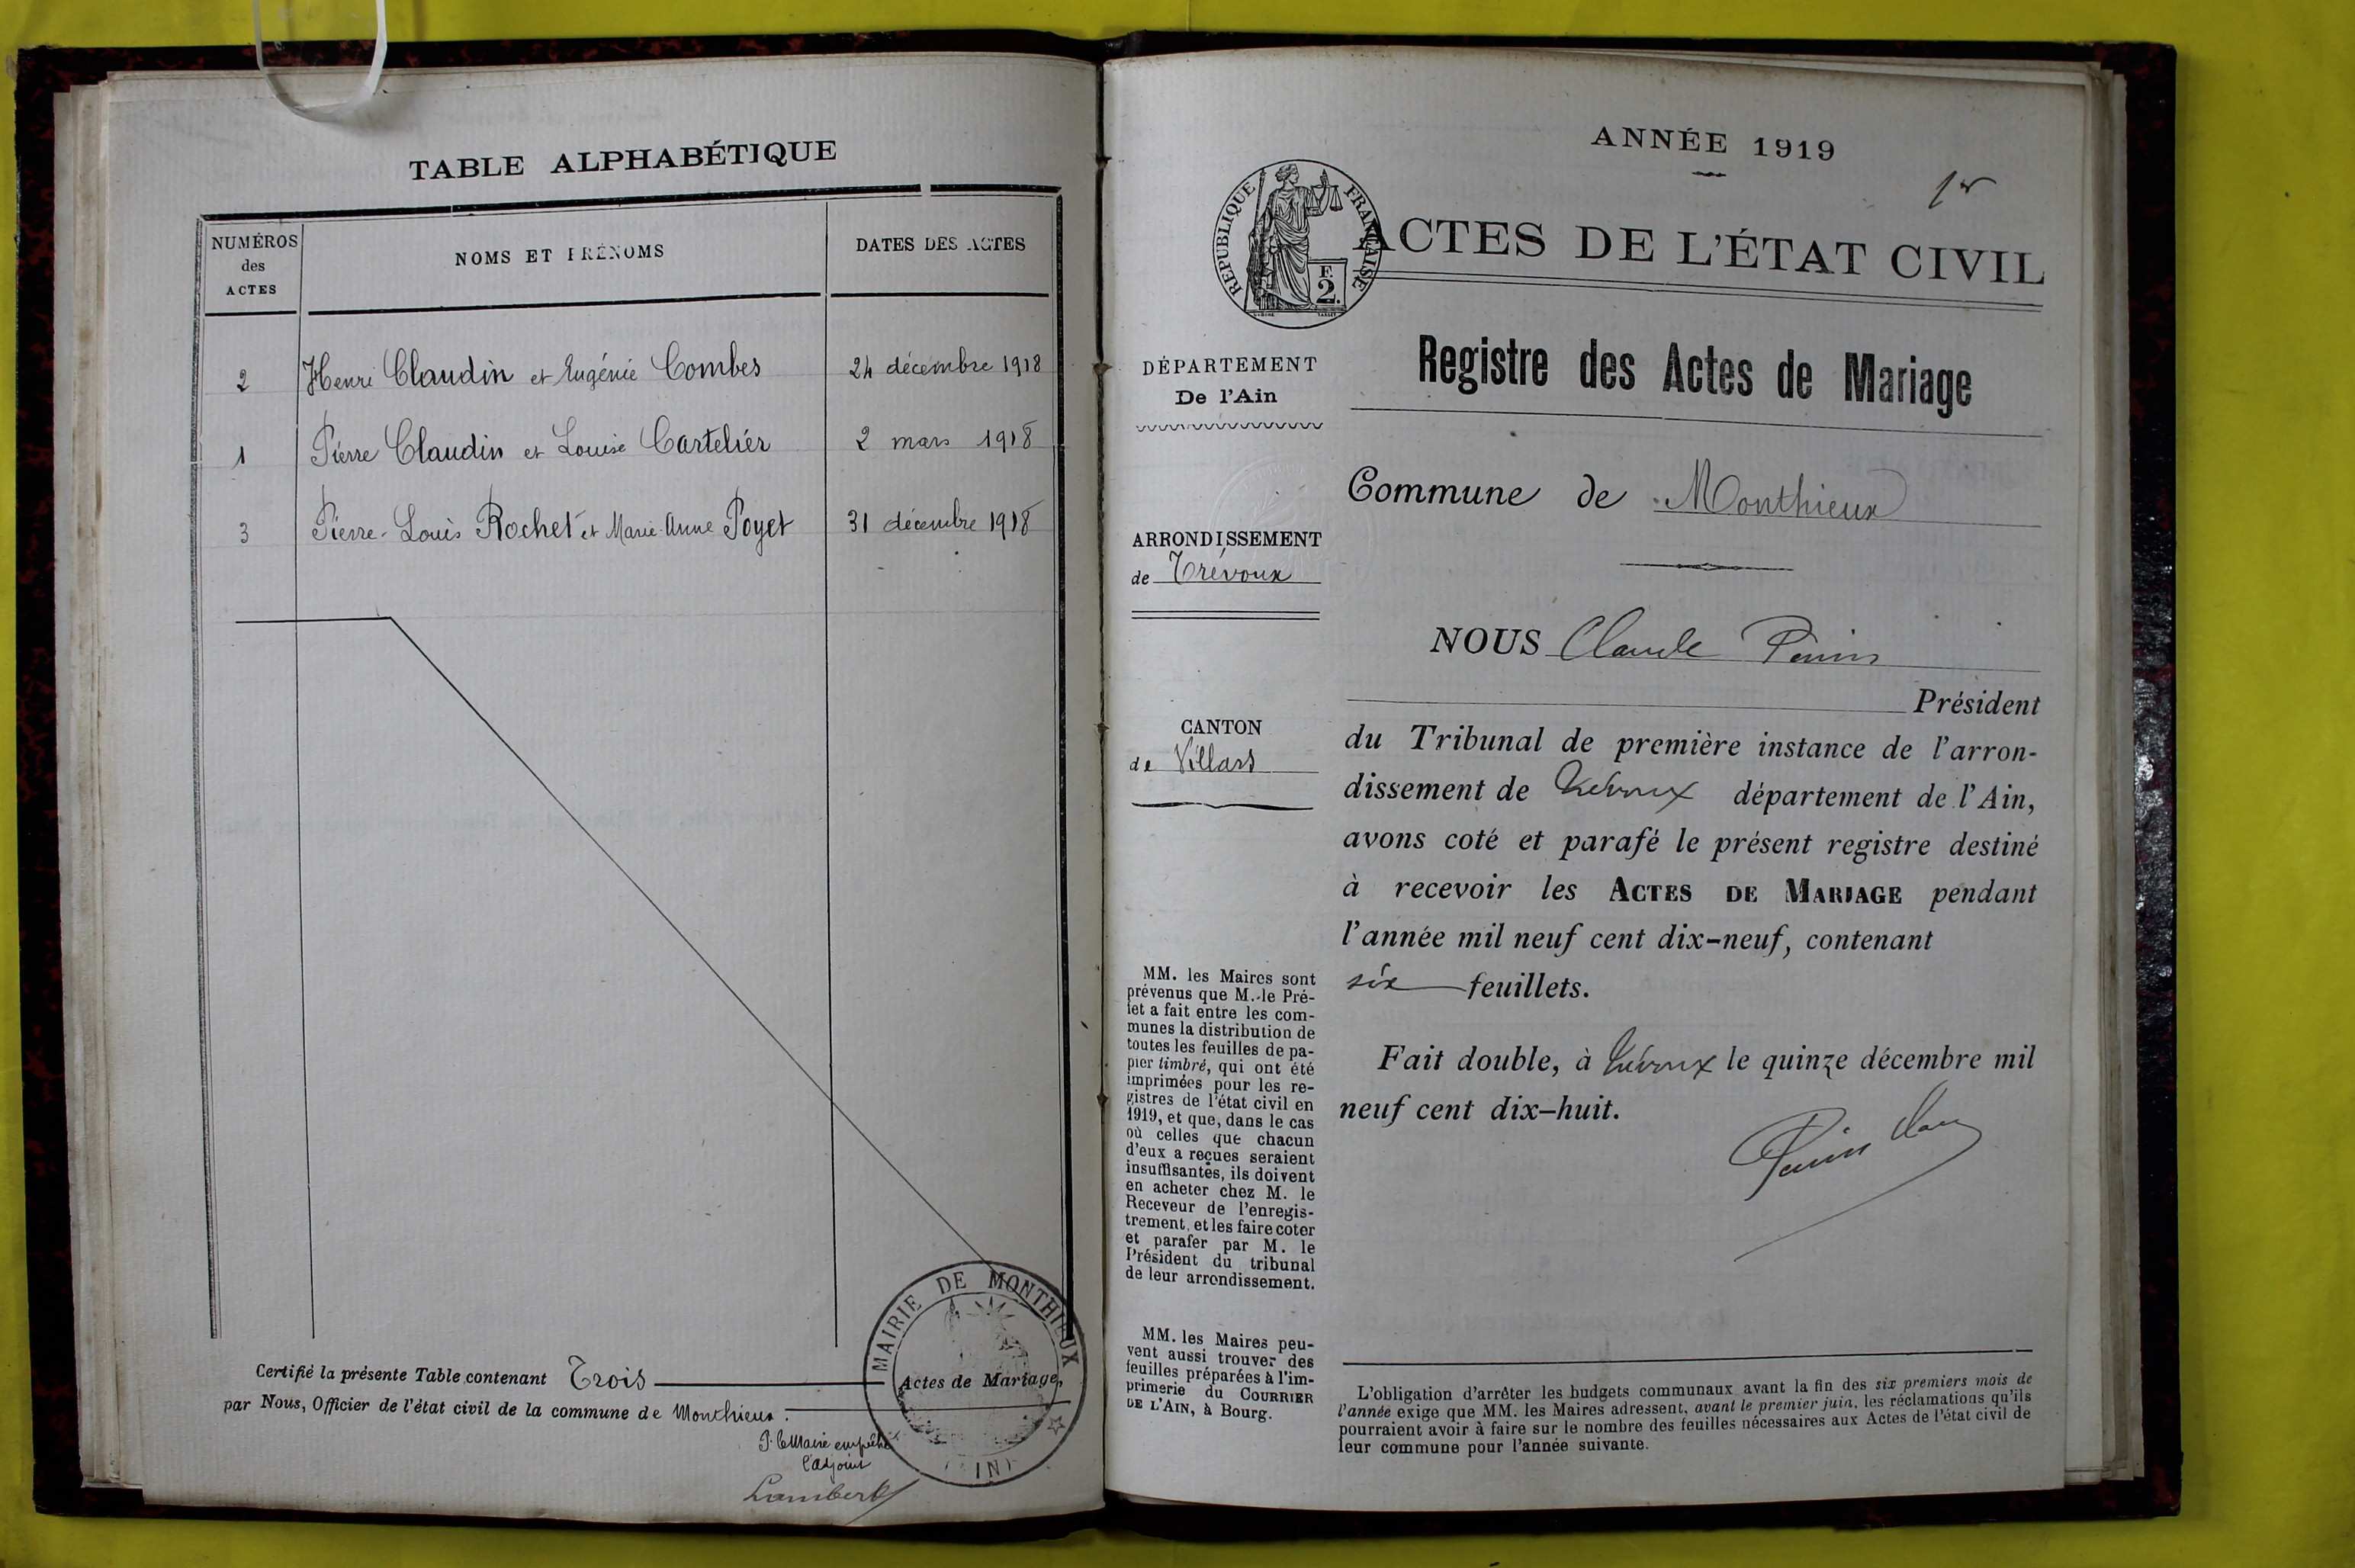 TABLE ALPHABÉTIQUE
NUMÉROS
des
ACTES
NOMS ET PRÉNOMS
DATES DES ACTES
2 Henri Claudin et Eugénie Combes 24 décembre 1918
1 Pierre Claudin et Louise Cartelier 2 mars 1918
3 Pierre-Louis Rochet et Marie-Anne Poyet 31 décembre 1918
Certifié la présente Table contenant Trois Actes de Mariage,
par Nous, Officier de l'état civil de la commune de Monthieux.
P. le Maire empêché
l'adjoint
Lambert
MAIRIE DE MONTHIEUX
(AIN)
ANNÉE 1919
RÉPUBLIQUE FRANÇAISE
F.
2.
ACTES DE L'ÉTAT CIVIL
DÉPARTEMENT
De l'Ain
ARRONDISSEMENT
de Trévoux
CANTON
de Villars
MM. les Maires sont
prévenus que M. le Pré-
fet a fait entre les com-
munes la distribution de
toutes les feuilles de pa-
pier timbré, qui ont été
imprimées pour les re-
gistres de l'état civil en
1919, et que, dans le cas
où celles que chacun
d'eux a reçues seraient
insuffisantes, ils doivent
en acheter chez M. le
Receveur de l'enregis-
trement, et les faire coter
et parafer par M. le
Président du tribunal
de leur arrondissement.
MM. les Maires peu-
vent aussi trouver des
feuilles préparées à l'im-
primerie du COURRIER
DE L'AIN, à Bourg.
Registre des Actes de Mariage
Commune de Monthieux
NOUS Claude
Président
du Tribunal de première instance de l'arron-
dissement de Trévoux département de l'Ain,
avons coté et parafé le présent registre destiné
à recevoir les ACTES DE MARIAGE pendant
l'année mil neuf cent dix-neuf, contenant
six feuillets.
Fait double, à Trévoux le quinze décembre mil
neuf cent dix-huit.
L'obligation d'arrêter les budgets communaux avant la fin des six premiers mois de
l'année exige que MM. les Maires adressent, avant le premier juin, les réclamations qu'ils
pourraient avoir à faire sur le nombre des feuilles nécessaires aux Actes de l'état civil de
leur commune pour l'année suivante.